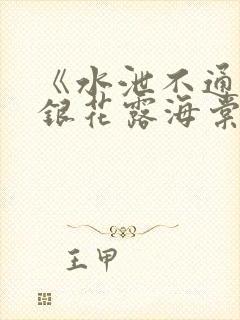 《水泄不通
银花露海棠
王甲